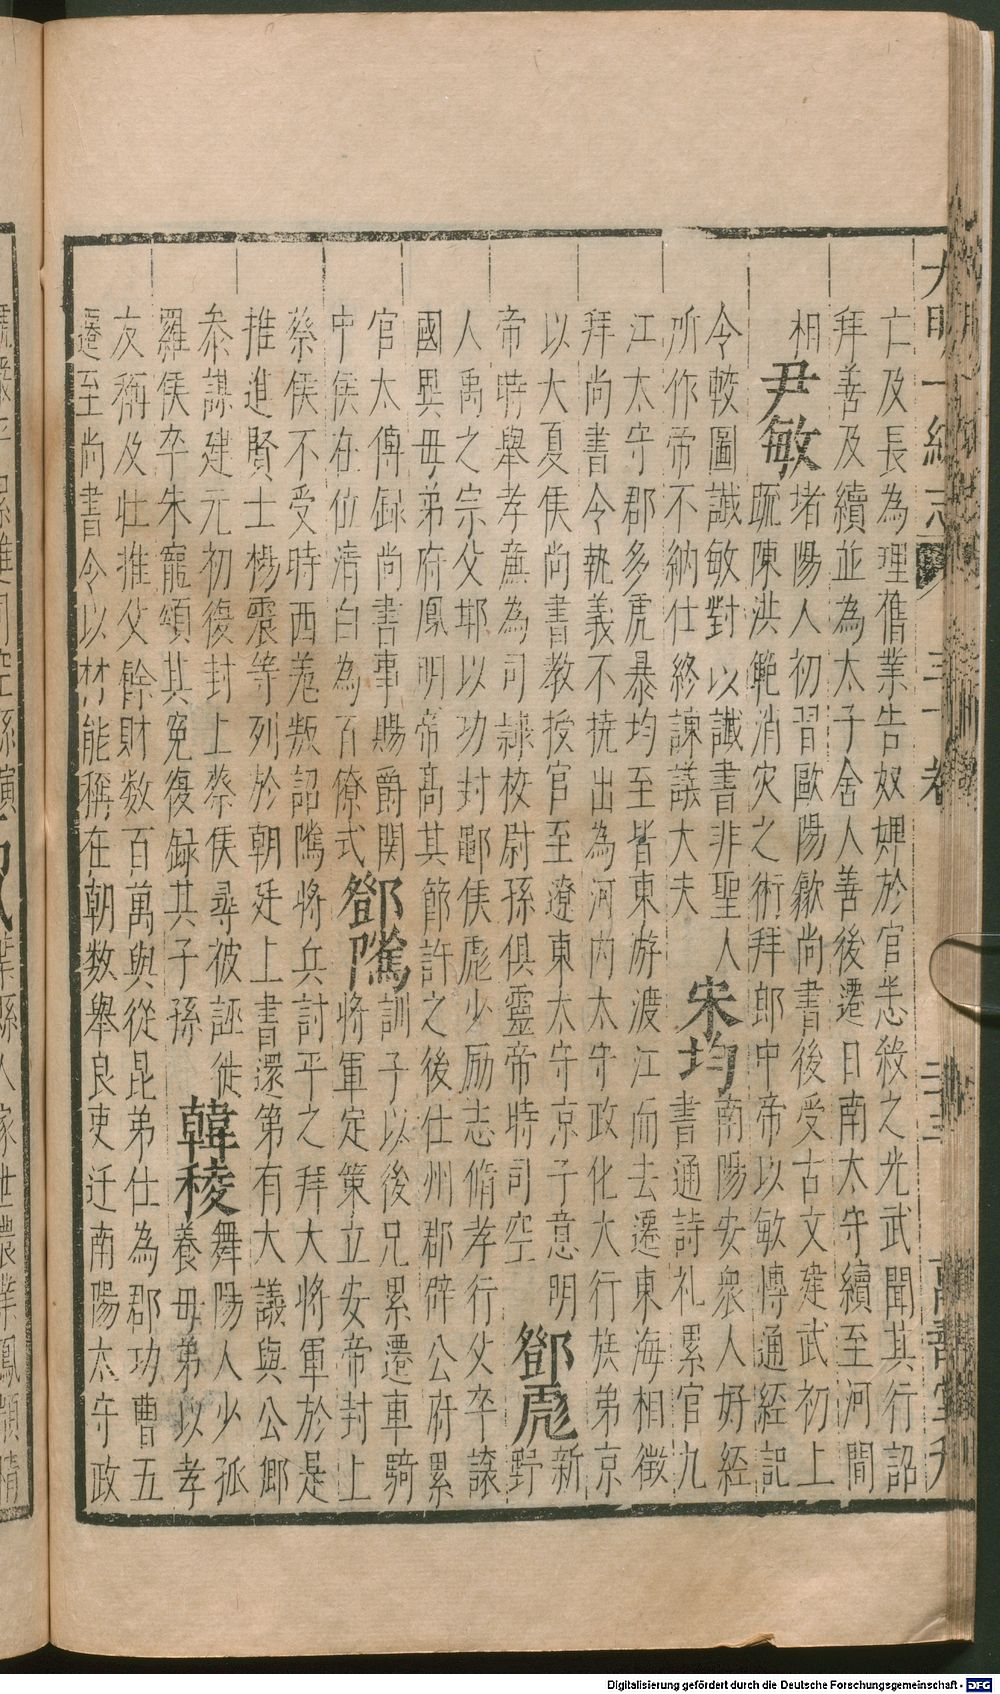 大明一統志 三十卷 三三 萬壽堂刊
亡及長為理舊業告奴婢於官悉殺之光武聞其行詔
拜善及續並為太子舍人善後遷日南太守續至河間
相
尹敏
堵陽人初習歐陽歙尚書後受古文建武初上
疏陳洪範消灾之術拜郎中帝以敏博通經記
令較圖讖敏對以讖書非聖人
所作帝不納仕終諫議大夫
宋均
南陽安衆人好經
書通詩礼累官九
江太守郡多虎暴均至皆東游渡江而去遷東海相徵
拜尚書令執義不撓出為河内太守政化大行族弟京
以大夏侯尚書教授官至遼東太守京子意明
帝時舉孝廉為司隷校尉孫俱靈帝時司空
鄧彪
新
野
人禹之宗父邯以功封鄳侯彪少励志脩孝行父卒讓
國異母弟府鳳明帝髙其節許之後仕州郡辟公府累
官太傅録尚書事賜爵関
中侯在位清白為百僚式
鄧隲
訓子以後兄累遷車騎
將軍定策立安帝封上
蔡侯不受時西羌叛詔隲将兵討平之拜大將軍於是
推進賢士楊震等列於朝廷上書還第有大議與公卿
叅謀建元初復封上蔡侯尋被誣徙
羅侯卒朱寵頌其寃復録其子孫
韓稜
舞陽人少孤
養母弟以孝
友稱及壮推父餘財数百萬與從昆弟仕為郡功曹五
遷至尚書令以材能稱在朝数舉良吏迁南陽太守政
Digitalisierung gefördert durch die Deutsche Forschungsgemeinschaft - DFG